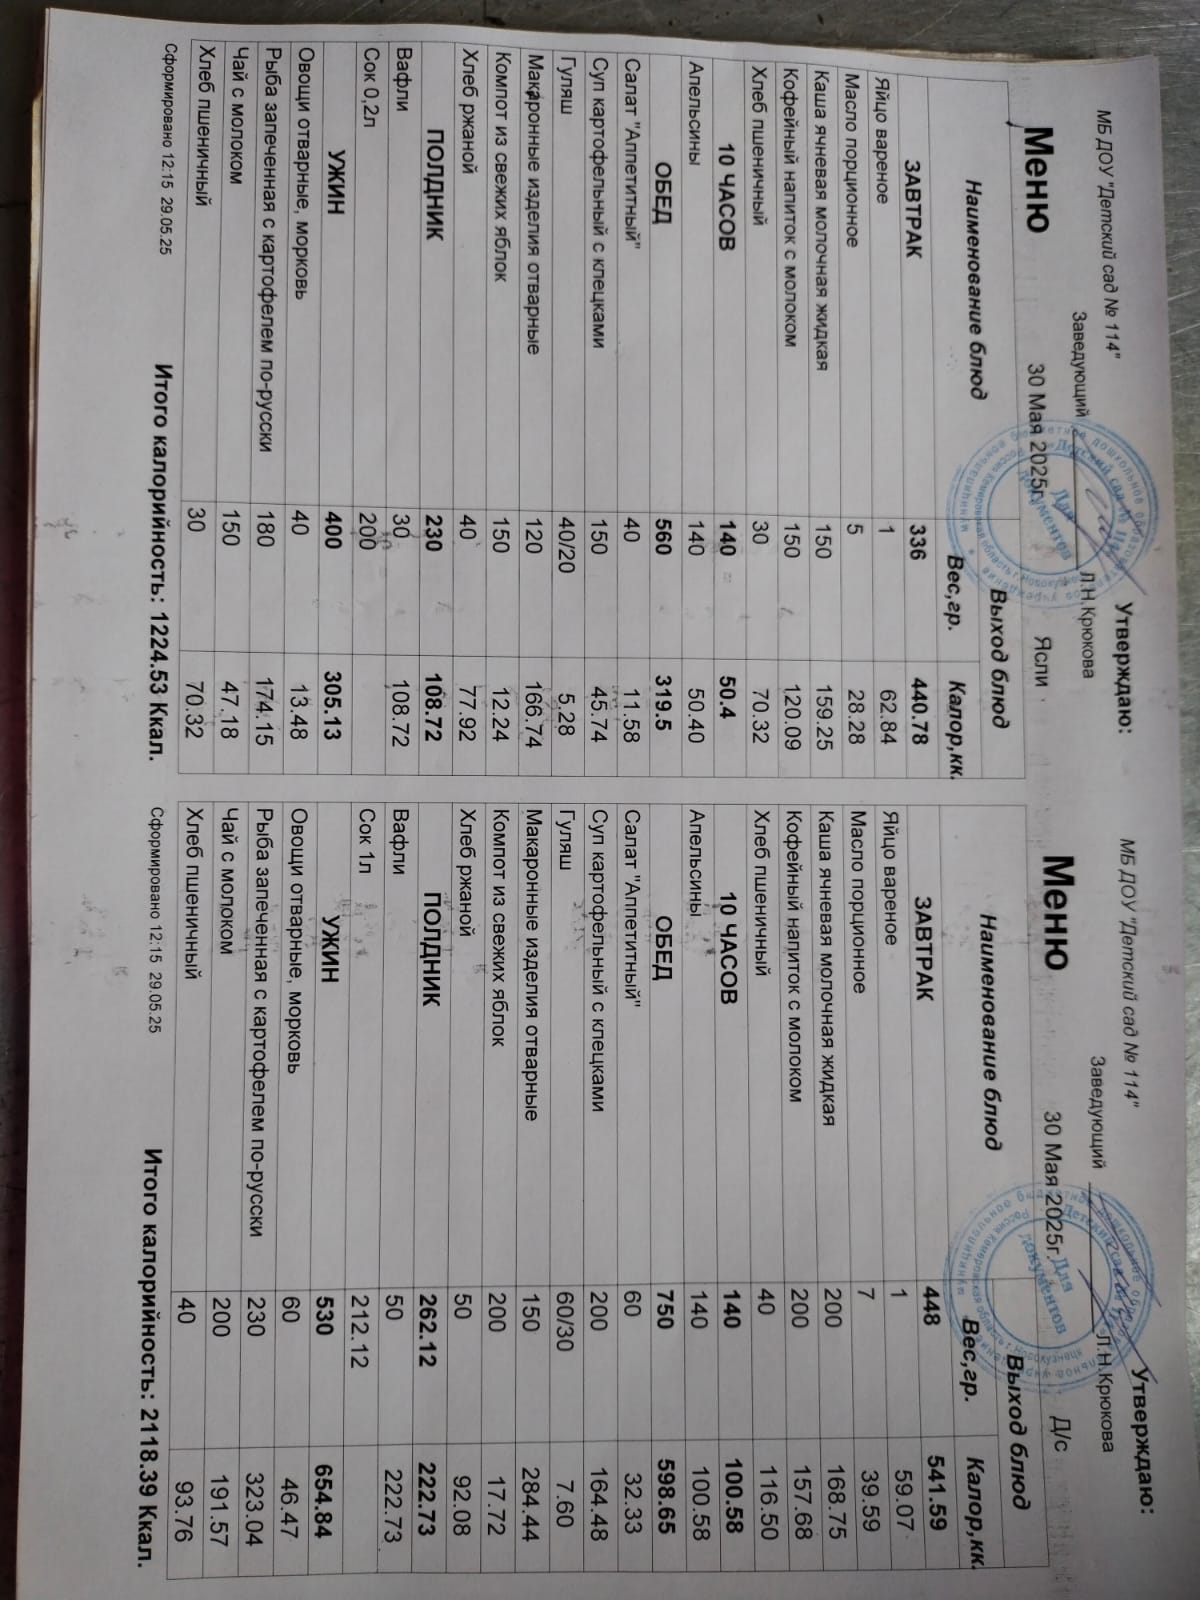 МБ ДОУ "Детский сад № 114"
Утверждаю:
Заведующий Л.Н.Крюкова
Меню 30 Мая 2025г. Ясли
Наименование блюд Выход блюд
Вес,гр. Калор,кк.
ЗАВТРАК 336 440.78
Яйцо вареное 1 62.84
Масло порционное 5 28.28
Каша ячневая молочная жидкая 150 159.25
Кофейный напиток с молоком 150 120.09
Хлеб пшеничный 30 70.32
10 ЧАСОВ 140 50.4
Апельсины 140 50.40
ОБЕД 560 319.5
Салат "Аппетитный" 40 11.58
Суп картофельный с клецками 150 45.74
Гуляш 40/20 5.28
Макаронные изделия отварные 120 166.74
Компот из свежих яблок 150 12.24
Хлеб ржаной 40 77.92
ПОЛДНИК 230 108.72
Вафли 30 108.72
Сок 0,2л 200
УЖИН 400 305.13
Овощи отварные, морковь 40 13.48
Рыба запеченная с картофелем по-русски 180 174.15
Чай с молоком 150 47.18
Хлеб пшеничный 30 70.32
Итого калорийность: 1224.53 Ккал.
Сформировано 12:15 29.05.25
МБ ДОУ "Детский сад № 114"
Утверждаю:
Заведующий Л.Н.Крюкова
Меню 30 Мая 2025г. Д/с
Наименование блюд Выход блюд
Вес,гр. Калор,кк.
ЗАВТРАК 448 541.59
Яйцо вареное 1 59.07
Масло порционное 7 39.59
Каша ячневая молочная жидкая 200 168.75
Кофейный напиток с молоком 200 157.68
Хлеб пшеничный 40 116.50
10 ЧАСОВ 140 100.58
Апельсины 140 100.58
ОБЕД 750 598.65
Салат "Аппетитный" 60 32.33
Суп картофельный с клецками 200 164.48
Гуляш 60/30 7.60
Макаронные изделия отварные 150 284.44
Компот из свежих яблок 200 17.72
Хлеб ржаной 50 92.08
ПОЛДНИК 262.12 222.73
Вафли 50 222.73
Сок 1л 212.12
УЖИН 530 654.84
Овощи отварные, морковь 60 46.47
Рыба запеченная с картофелем по-русски 230 323.04
Чай с молоком 200 191.57
Хлеб пшеничный 40 93.76
Итого калорийность: 2118.39 Ккал.
Сформировано 12:15 29.05.25
Для
документов
Для
документов